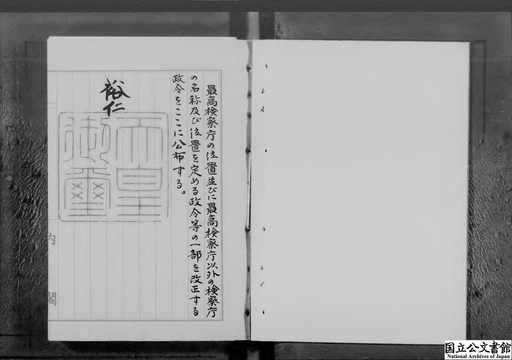 最高検察庁の位置並びに最高検察庁以外の検察庁
の名称及び位置を定める政令等の一部を改正する
政令をここに公布する。
裕仁
天皇
御璽
内閣
国立公文書館
National Archives of Japan